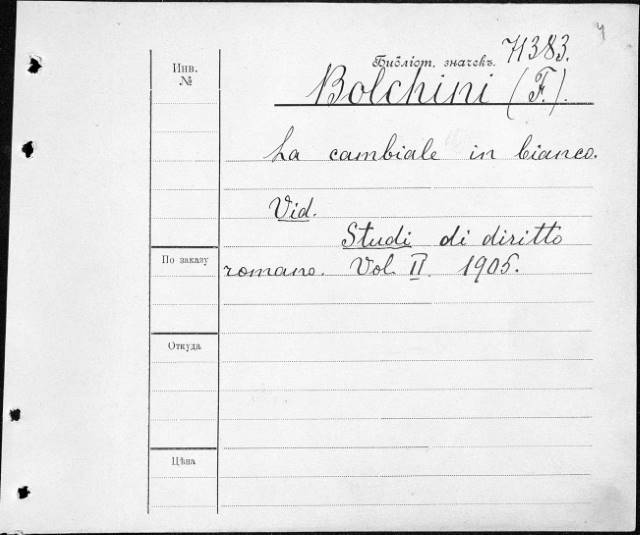 Библіот. значекъ. 71383.
Инв.
№
Bolchini (F.).
La cambiale in bianco.
Vid.
Studi di diritto
По заказу
romano. Vol II. 1905.
Откуда
Цѣна